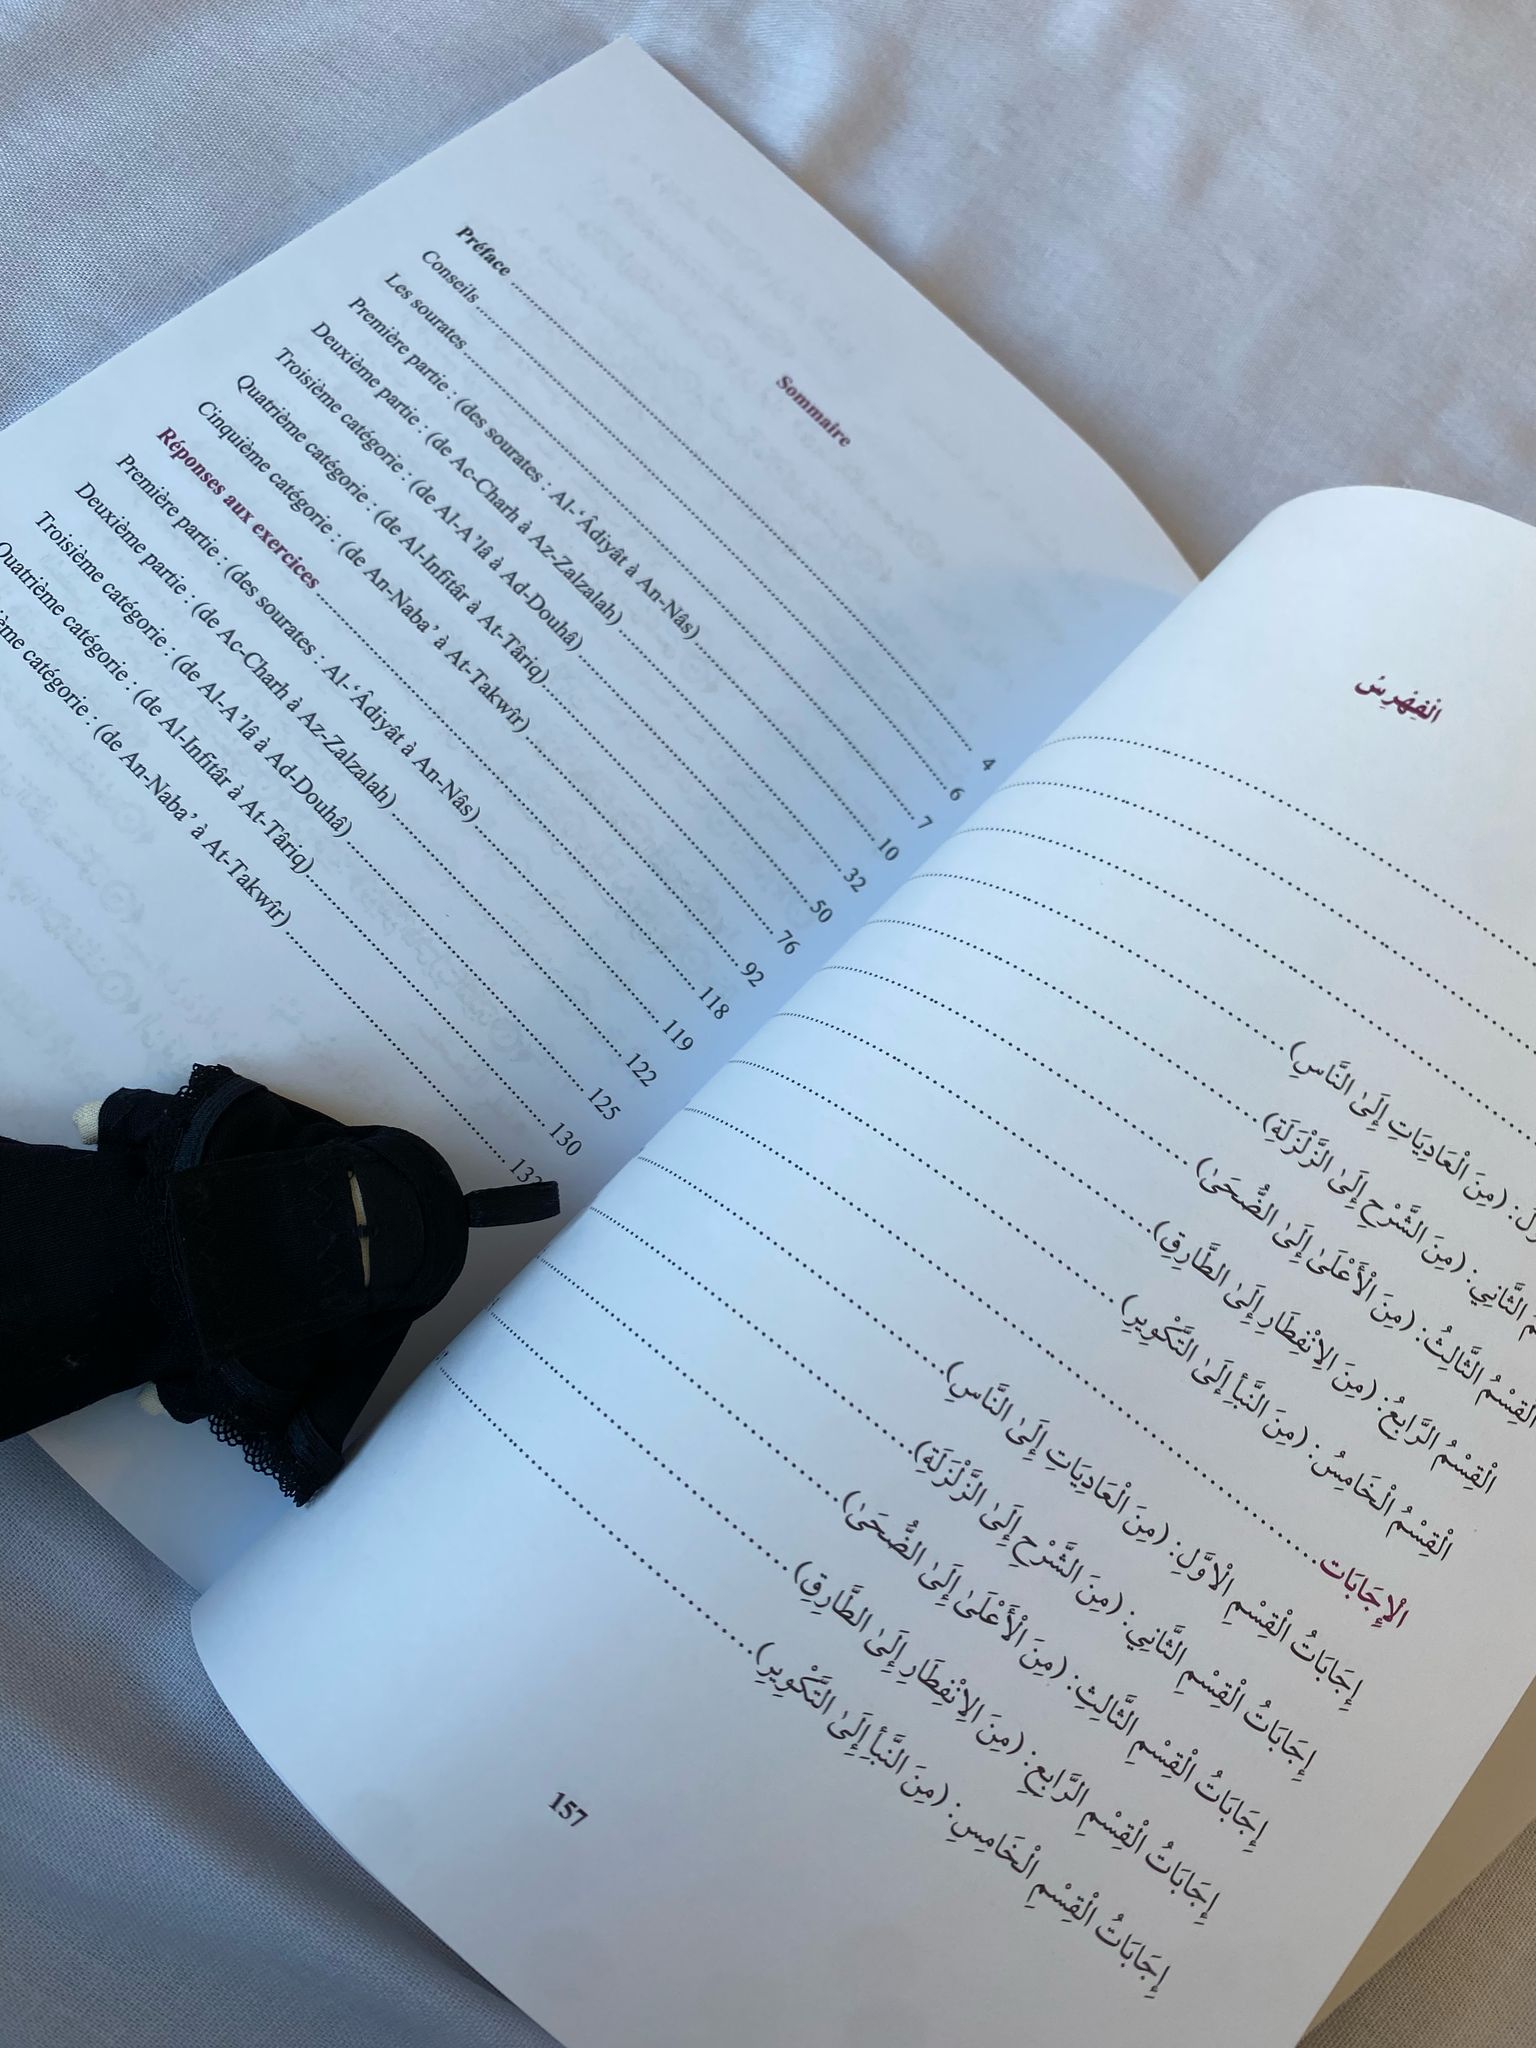 Sommaire
Préface ........ 4
Conseils ........ 6
Les sourates ........ 7
Première partie : (des sourates : Al-‘Âdiyât à An-Nâs) ........ 10
Deuxième partie : (de Ac-Charh à Az-Zalzalah) ........ 32
Troisième catégorie : (de Al-A’lâ à Ad-Douhâ) ........ 50
Quatrième catégorie : (de Al-Infitâr à At-Târiq) ........ 76
Cinquième catégorie : (de An-Naba’ à At-Takwîr) ........ 92
Réponses aux exercices ........ 118
Première partie : (des sourates : Al-‘Âdiyât à An-Nâs) ........ 119
Deuxième partie : (de Ac-Charh à Az-Zalzalah) ........ 122
Troisième catégorie : (de Al-A’lâ à Ad-Douhâ) ........ 125
Quatrième catégorie : (de Al-Infitâr à At-Târiq) ........ 130
catégorie : (de An-Naba’ à At-Takwîr) ........ 132
الْفِهْرِسُ
(مِنَ الْعَادِيَاتِ إِلَىٰ النَّاسِ) ........
الثَّانِي: (مِنَ الشَّرْحِ إِلَىٰ الزَّلْزَلَةِ) ........
الْقِسْمُ الثَّالِثُ: (مِنَ الْأَعْلَىٰ إِلَىٰ الضُّحَىٰ) ........
الْقِسْمُ الرَّابِعُ: (مِنَ الِانْفِطَارِ إِلَىٰ الطَّارِقِ) ........
الْقِسْمُ الْخَامِسُ: (مِنَ النَّبَأِ إِلَىٰ التَّكْوِيرِ) ........
الْإِجَابَات ........
إِجَابَاتُ الْقِسْمِ الْأَوَّلِ: (مِنَ الْعَادِيَاتِ إِلَىٰ النَّاسِ) ........
إِجَابَاتُ الْقِسْمِ الثَّانِي: (مِنَ الشَّرْحِ إِلَىٰ الزَّلْزَلَةِ) ........
إِجَابَاتُ الْقِسْمِ الثَّالِثِ: (مِنَ الْأَعْلَىٰ إِلَىٰ الضُّحَىٰ) ........
إِجَابَاتُ الْقِسْمِ الرَّابِعِ: (مِنَ الِانْفِطَارِ إِلَىٰ الطَّارِقِ) ........
إِجَابَاتُ الْقِسْمِ الْخَامِسِ: (مِنَ النَّبَأِ إِلَىٰ التَّكْوِيرِ) ........
157